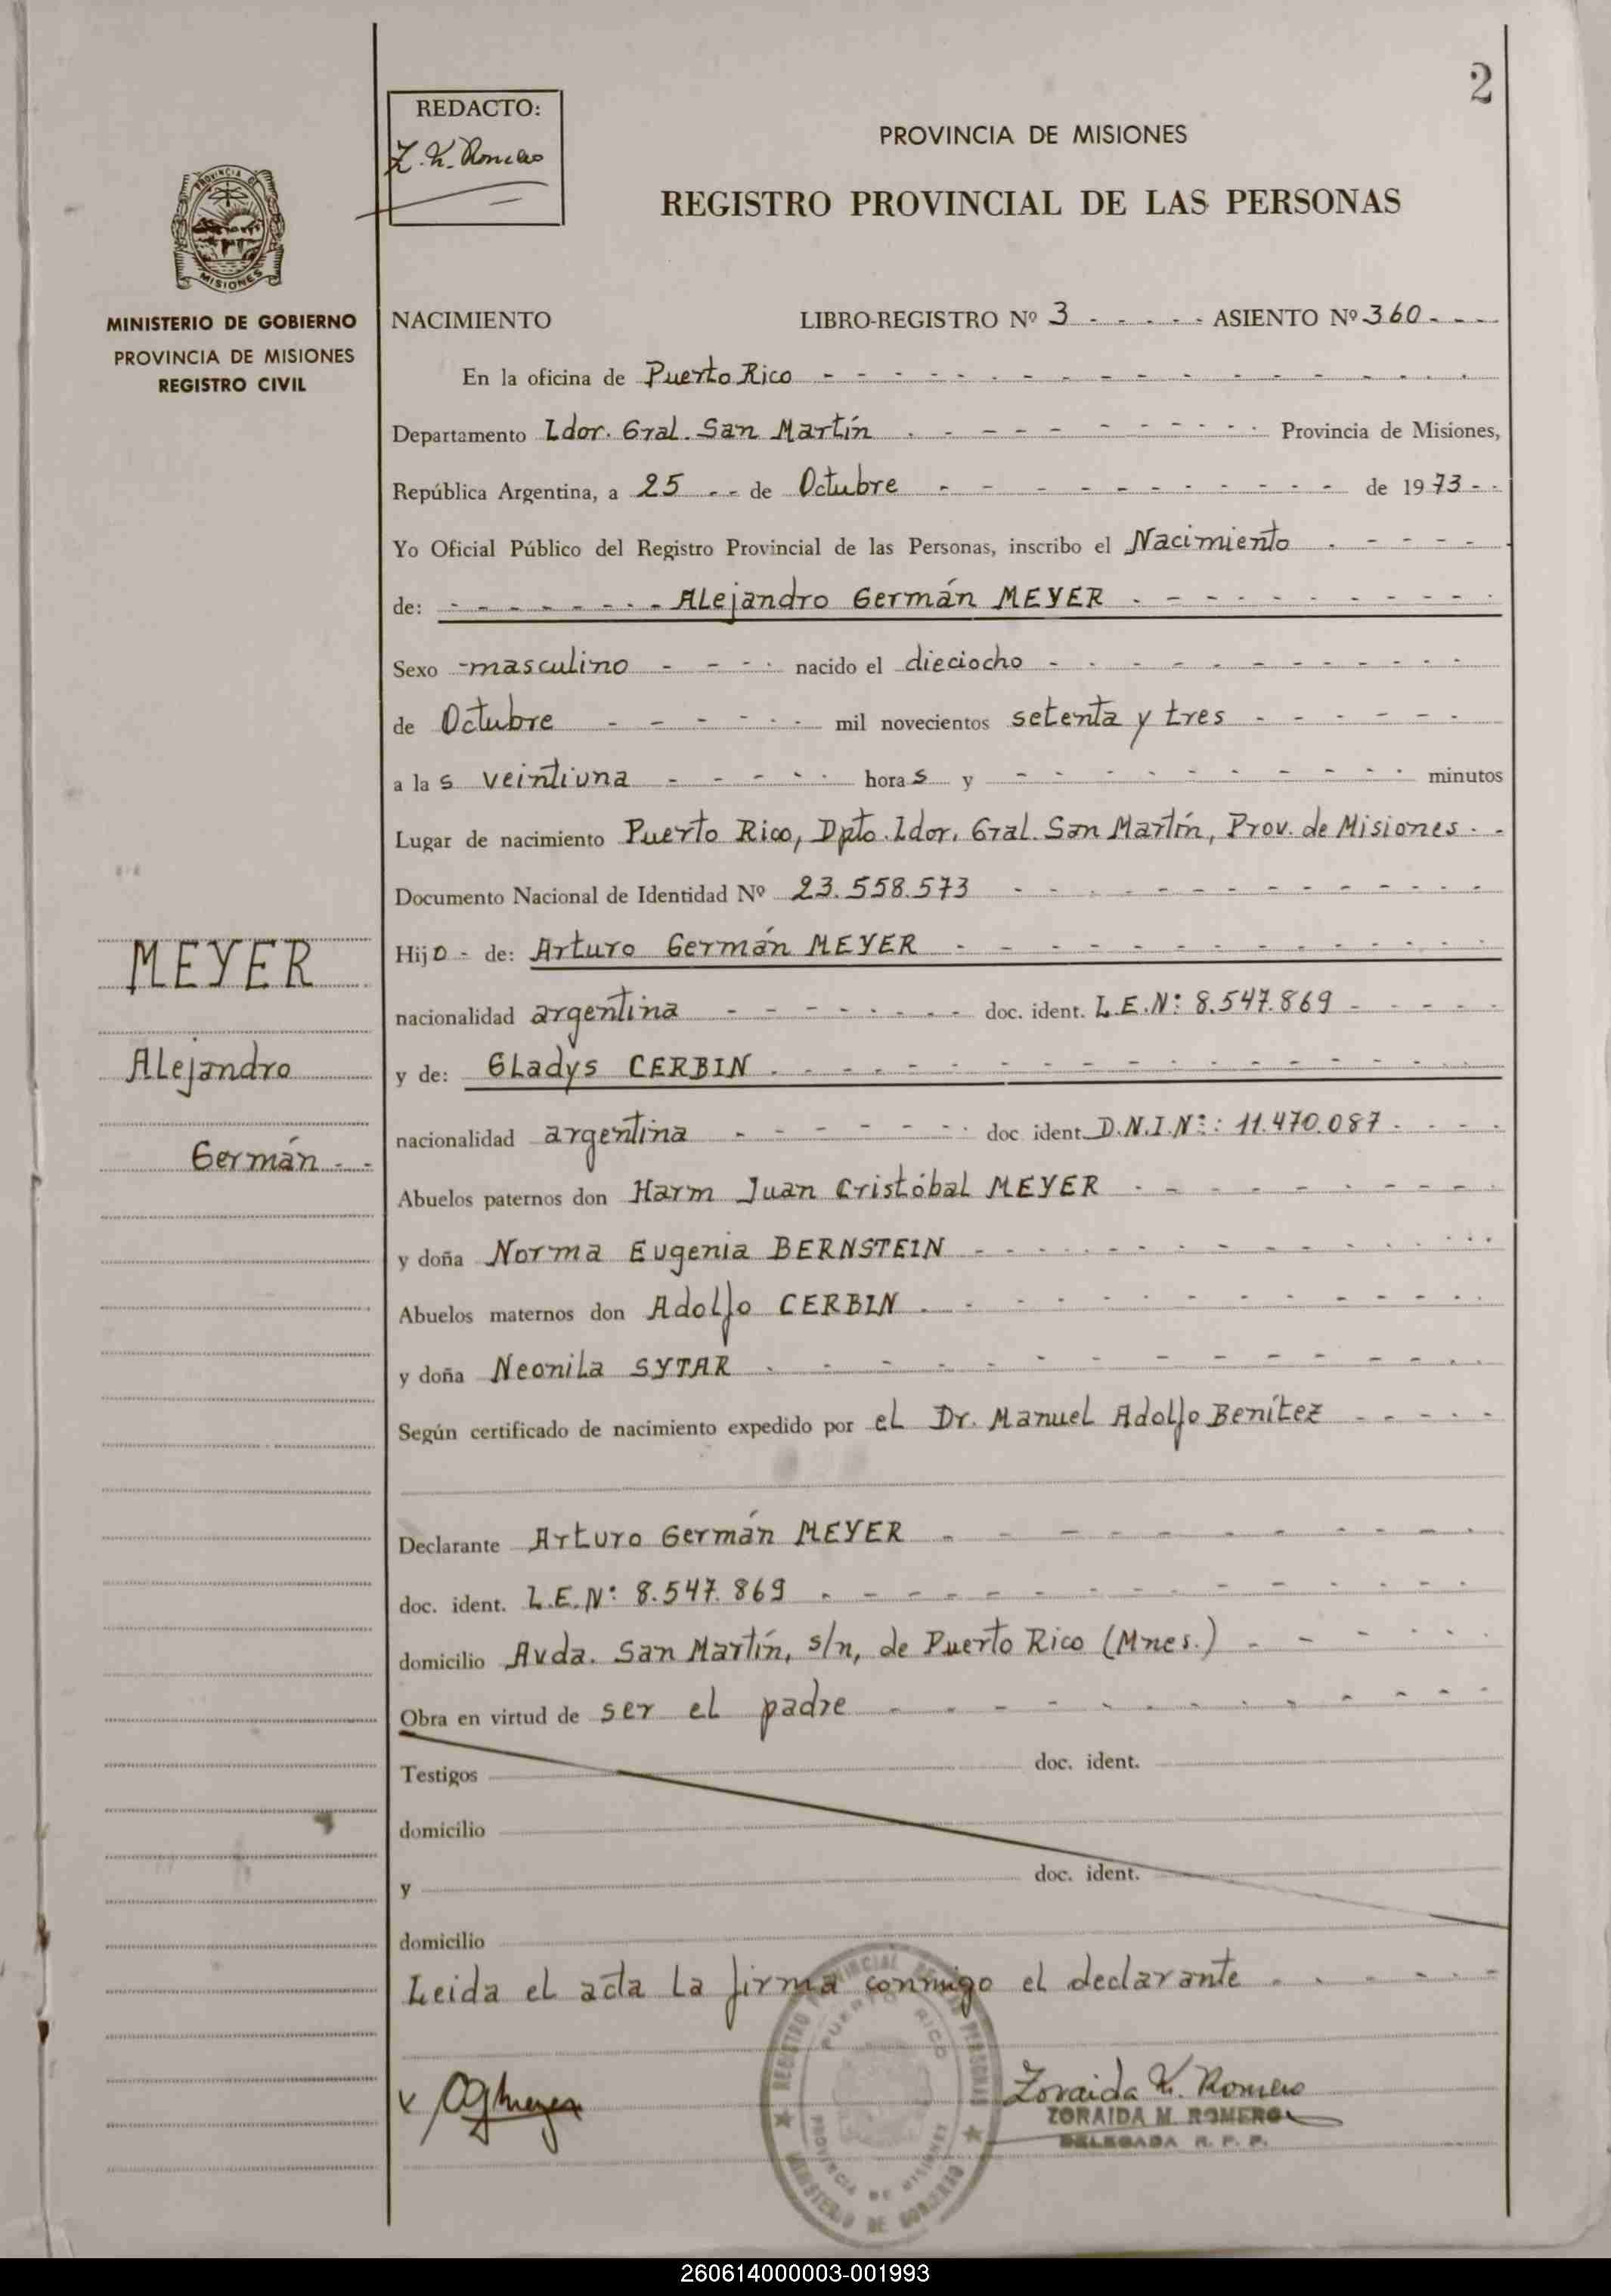 2
REDACTO:
Z. M. Romero
PROVINCIA DE MISIONES
REGISTRO PROVINCIAL DE LAS PERSONAS
PROVINCIA DE
MISIONES
MINISTERIO DE GOBIERNO
PROVINCIA DE MISIONES
REGISTRO CIVIL
NACIMIENTO LIBRO-REGISTRO Nº 3 - - - - - - ASIENTO Nº 360 - - - -
En la oficina de Puerto Rico
Departamento Ldor. Gral. San Martín Provincia de Misiones,
República Argentina, a 25 - - de Octubre de 1973 - -
Yo Oficial Público del Registro Provincial de las Personas, inscribo el Nacimiento
de: Alejandro Germán MEYER
Sexo masculino nacido el dieciocho
de Octubre mil novecientos setenta y tres
a las veintiuna horas y minutos
Lugar de nacimiento Puerto Rico, Dpto. Ldor. Gral. San Martín, Prov. de Misiones
Documento Nacional de Identidad Nº 23.558.573
MEYER
Alejandro
Germán
Hijo - de: Arturo Germán MEYER
nacionalidad argentina doc. ident. L.E.Nº: 8.547.869
y de: Gladys CERBIN
nacionalidad argentina doc ident. D.N.I.Nº: 11.470.087
Abuelos paternos don Harm Juan Cristóbal MEYER
y doña Norma Eugenia BERNSTEIN
Abuelos maternos don Adolfo CERBIN
y doña Neonila SYTAR
Según certificado de nacimiento expedido por el Dr. Manuel Adolfo Benítez
Declarante Arturo Germán MEYER
doc. ident. L.E.Nº: 8.547.869
domicilio Avda. San Martín, s/n, de Puerto Rico (Mnes.)
Obra en virtud de ser el padre
Testigos doc. ident.
domicilio
y doc. ident.
domicilio
Leida el acta la firma conmigo el declarante
REGISTRO PROVINCIAL DE LAS PERSONAS
PUERTO RICO
PROVINCIA DE MISIONES
MINISTERIO DE GOBIERNO
Zoraida M. Romero
ZORAIDA M. ROMERO
DELEGADA R. P. P.
260614000003-001993